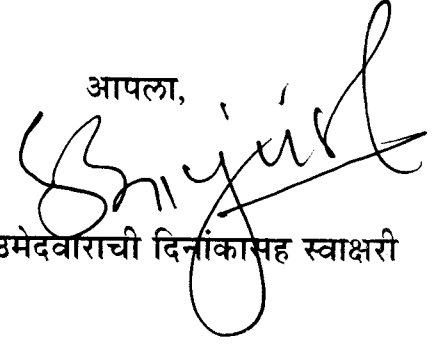 आपला,
उमेदवाराची दिनांकासह स्वाक्षरी